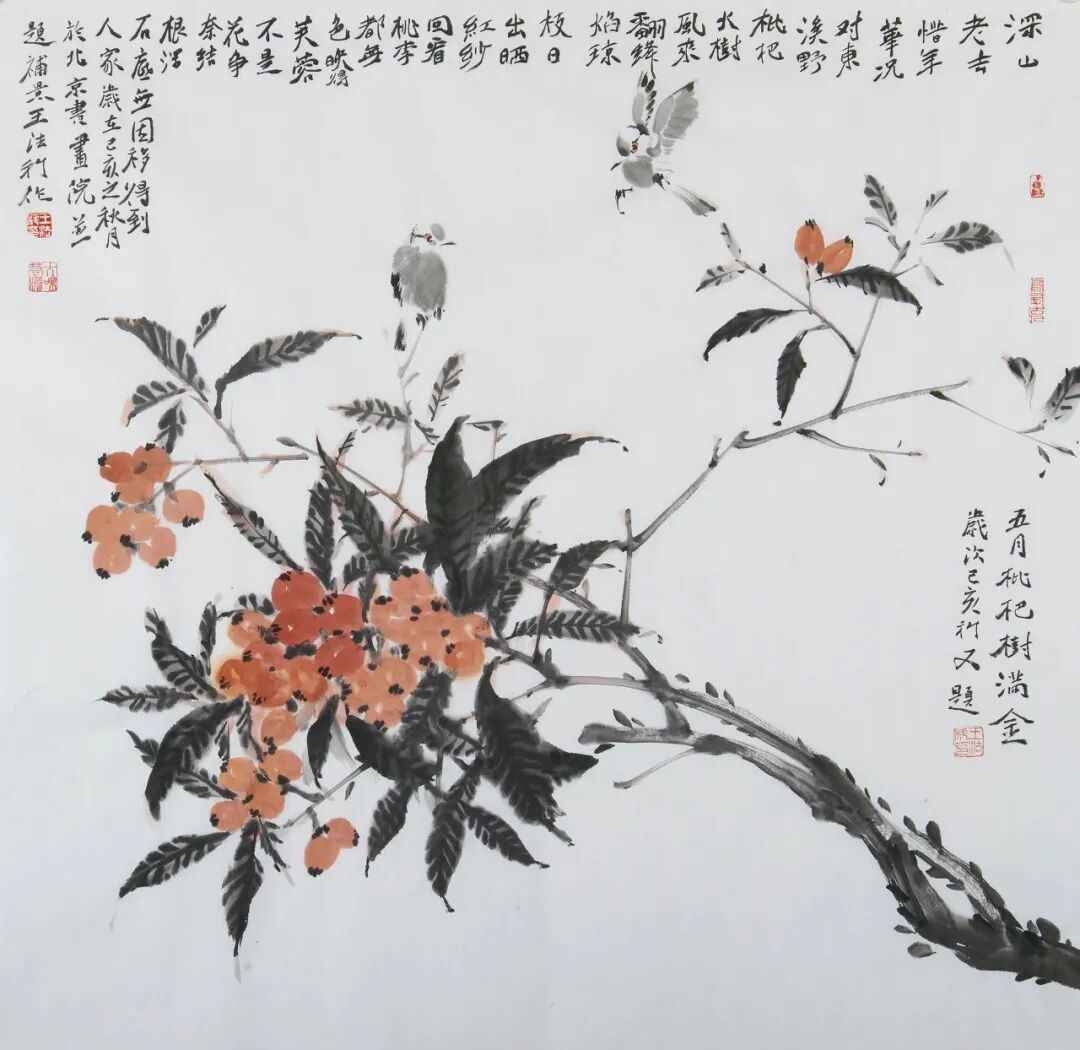 深山
老去
惜年
華况
对東
溪野
枇杷
火樹
風来
翻绛
焰琼
枝日
出晒
紅紗
回看
桃李
都無
色映得
芙蓉
不是
花争
奈结
根深
石底無因移得到
人家 歲在己亥之秋月
於北京書畫院並
題補景王法利作
五月枇杷樹滿金
歲次己亥利又題